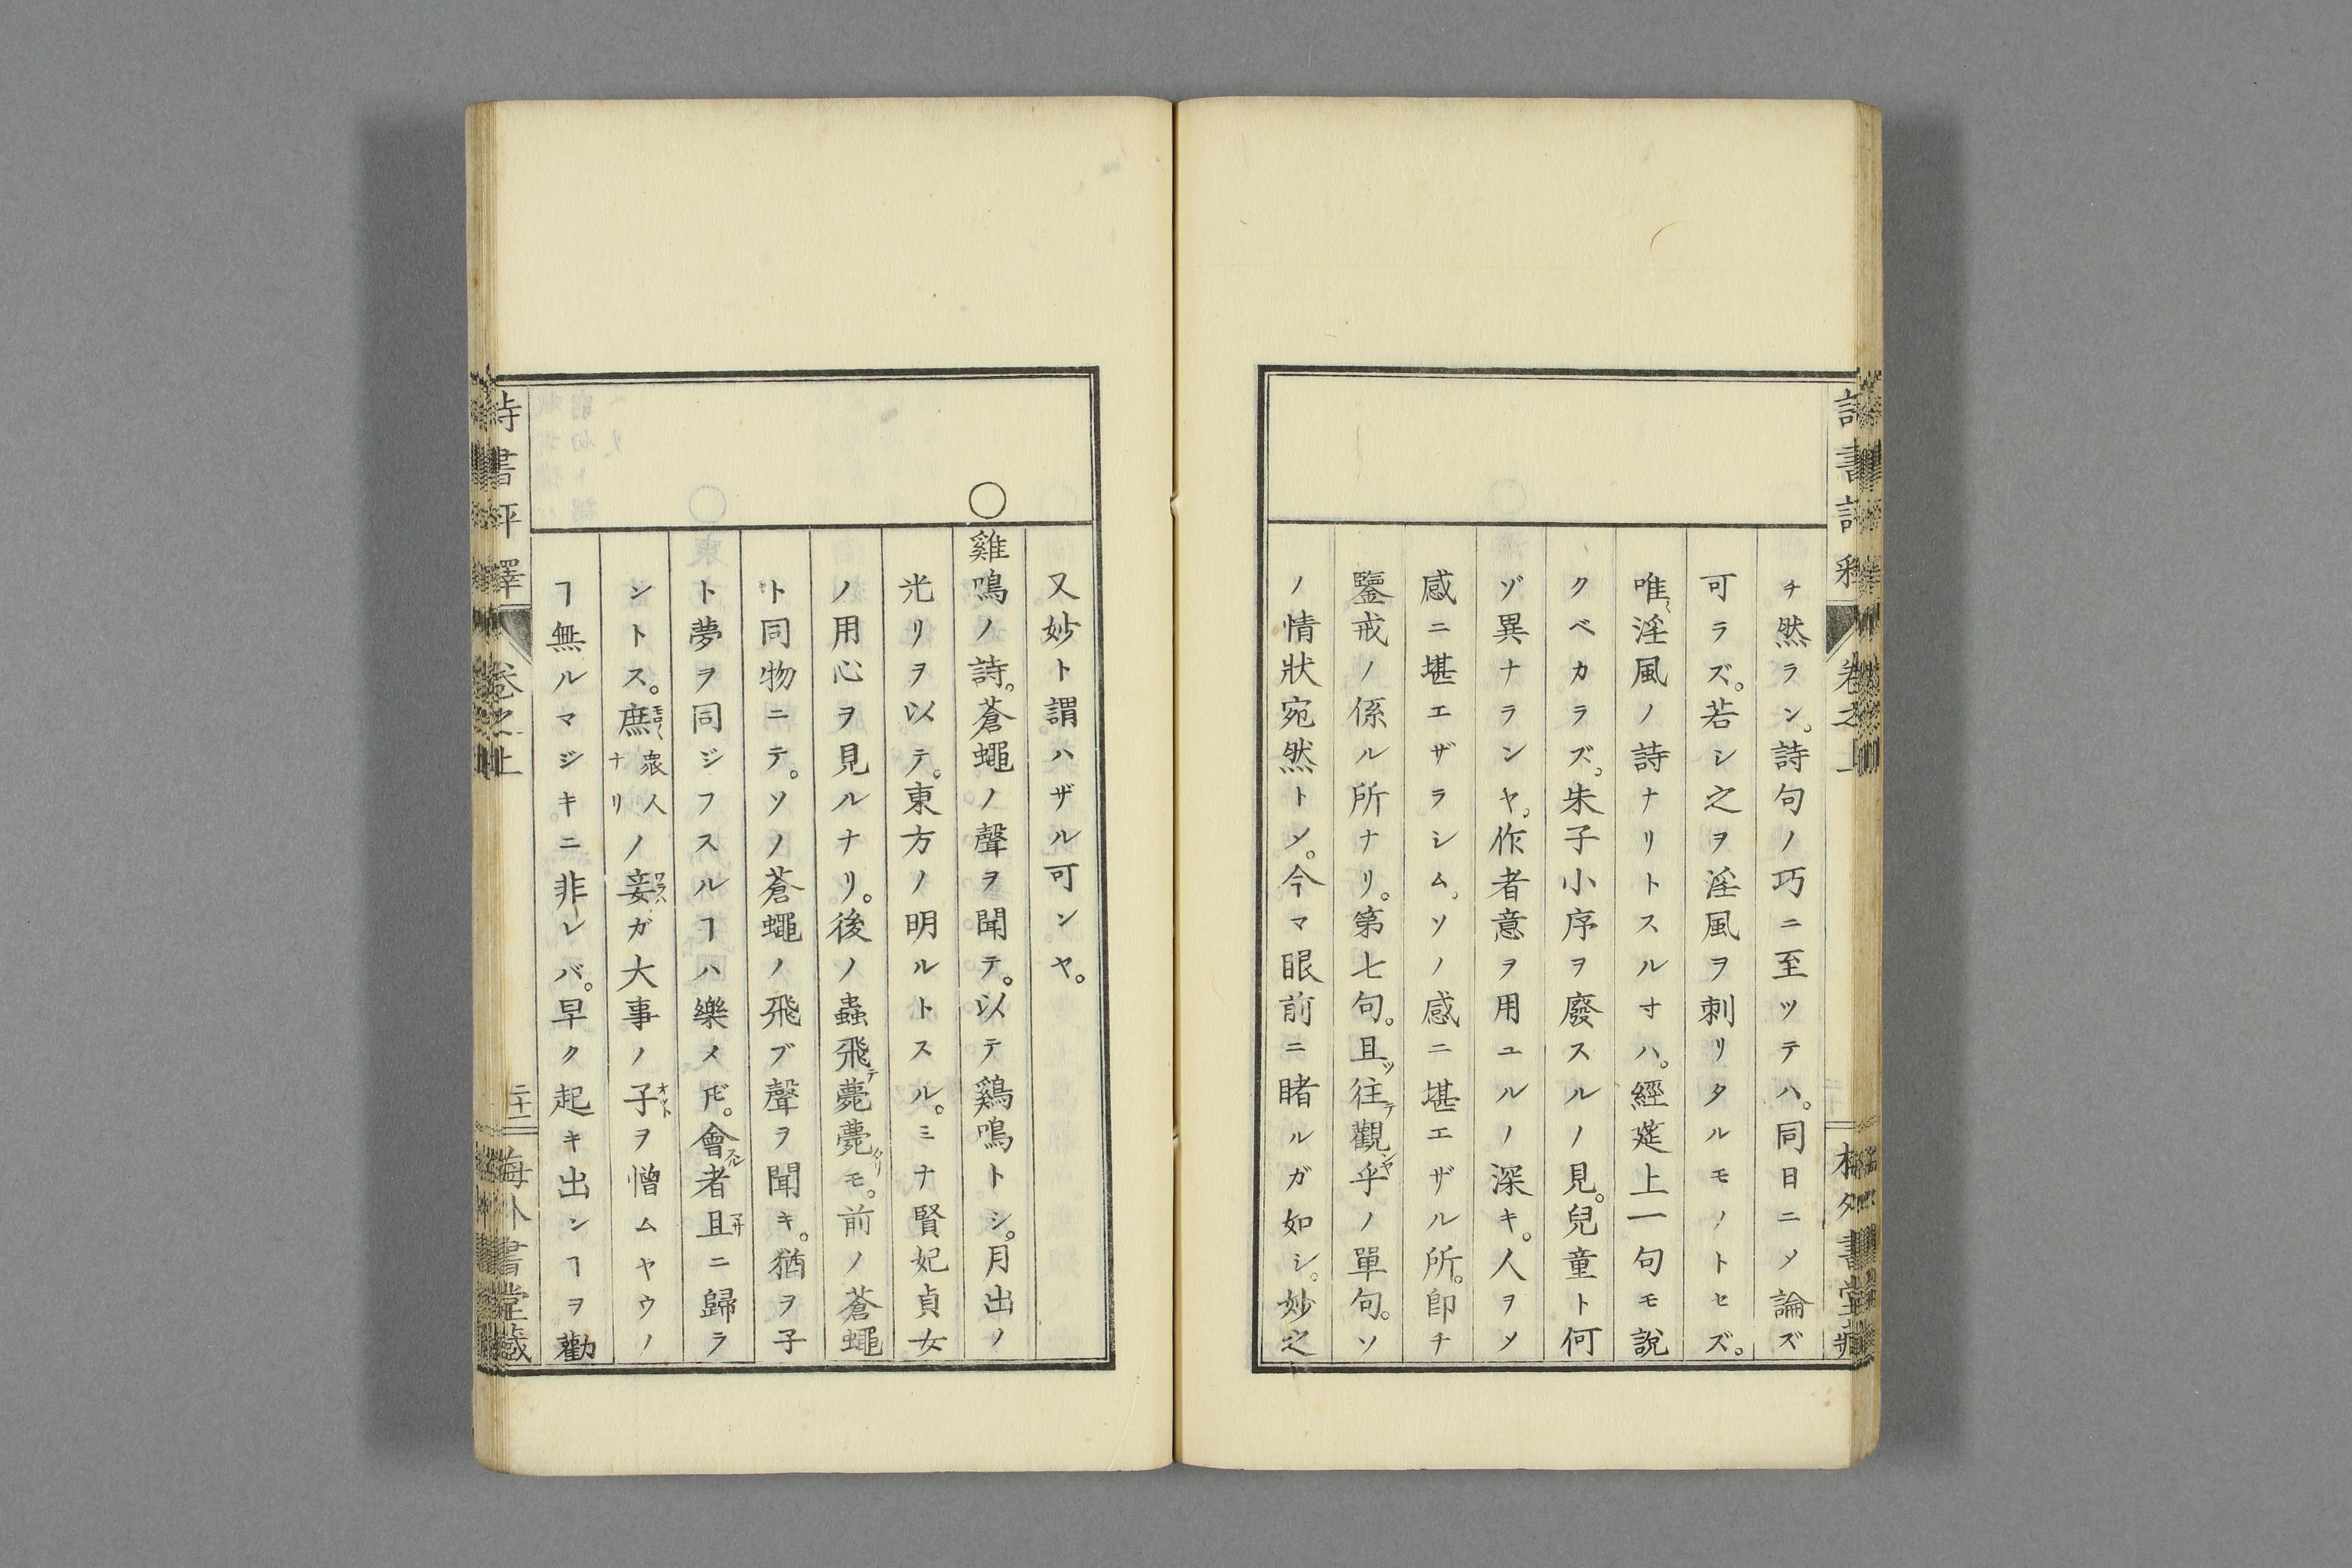 チ然ラン。詩句ノ巧ニ至ツテハ。同日ニ〆論ズ
可ラズ。若シ之ヲ淫風ヲ刺リタルモノトセズ。
唯〻淫風ノ詩ナリトスルオハ。經筵上一句モ說
クベカラズ。朱子小序ヲ廢スルノ見。兒童ト何
ゾ異ナランヤ。作者意ヲ用ユルノ深キ。人ヲ〆
感ニ堪エザラシム。ソノ感ニ堪エザル所。卽チ
鑒戒ノ係ル所ナリ。第七句。且ツ往テ觀ンヤ乎ノ單句。ソ
ノ情狀宛然トシ。今マ眼前ニ睹ルガ如シ。妙之
又妙ト謂ハザル可ンヤ。
○雞鳴ノ詩。蒼蠅ノ聲ヲ聞テ。以テ鷄鳴トシ。月出ノ
光リヲ以テ。東方ノ明ルトスル。ミナ賢妃貞女
ノ用心ヲ見ルナリ。後ノ蟲飛テ薨薨タリモ。前ノ蒼蠅
ト同物ニテ。ソノ蒼蠅ノ飛ブ聲ヲ聞キ。猶ヲ子
ト夢ヲ同ジフスルヿハ樂メ𪜈。會スル者且マサニ歸ラ
ントス。庶モロ〱衆人ナリノ妾ワラハガ大事ノ子オットヲ憎ムヤウノ
ヿ無ルマジキニ非レバ。早ク起キ出ンヿヲ勸
詩書評釋
卷之上
二十二
海外書堂藏